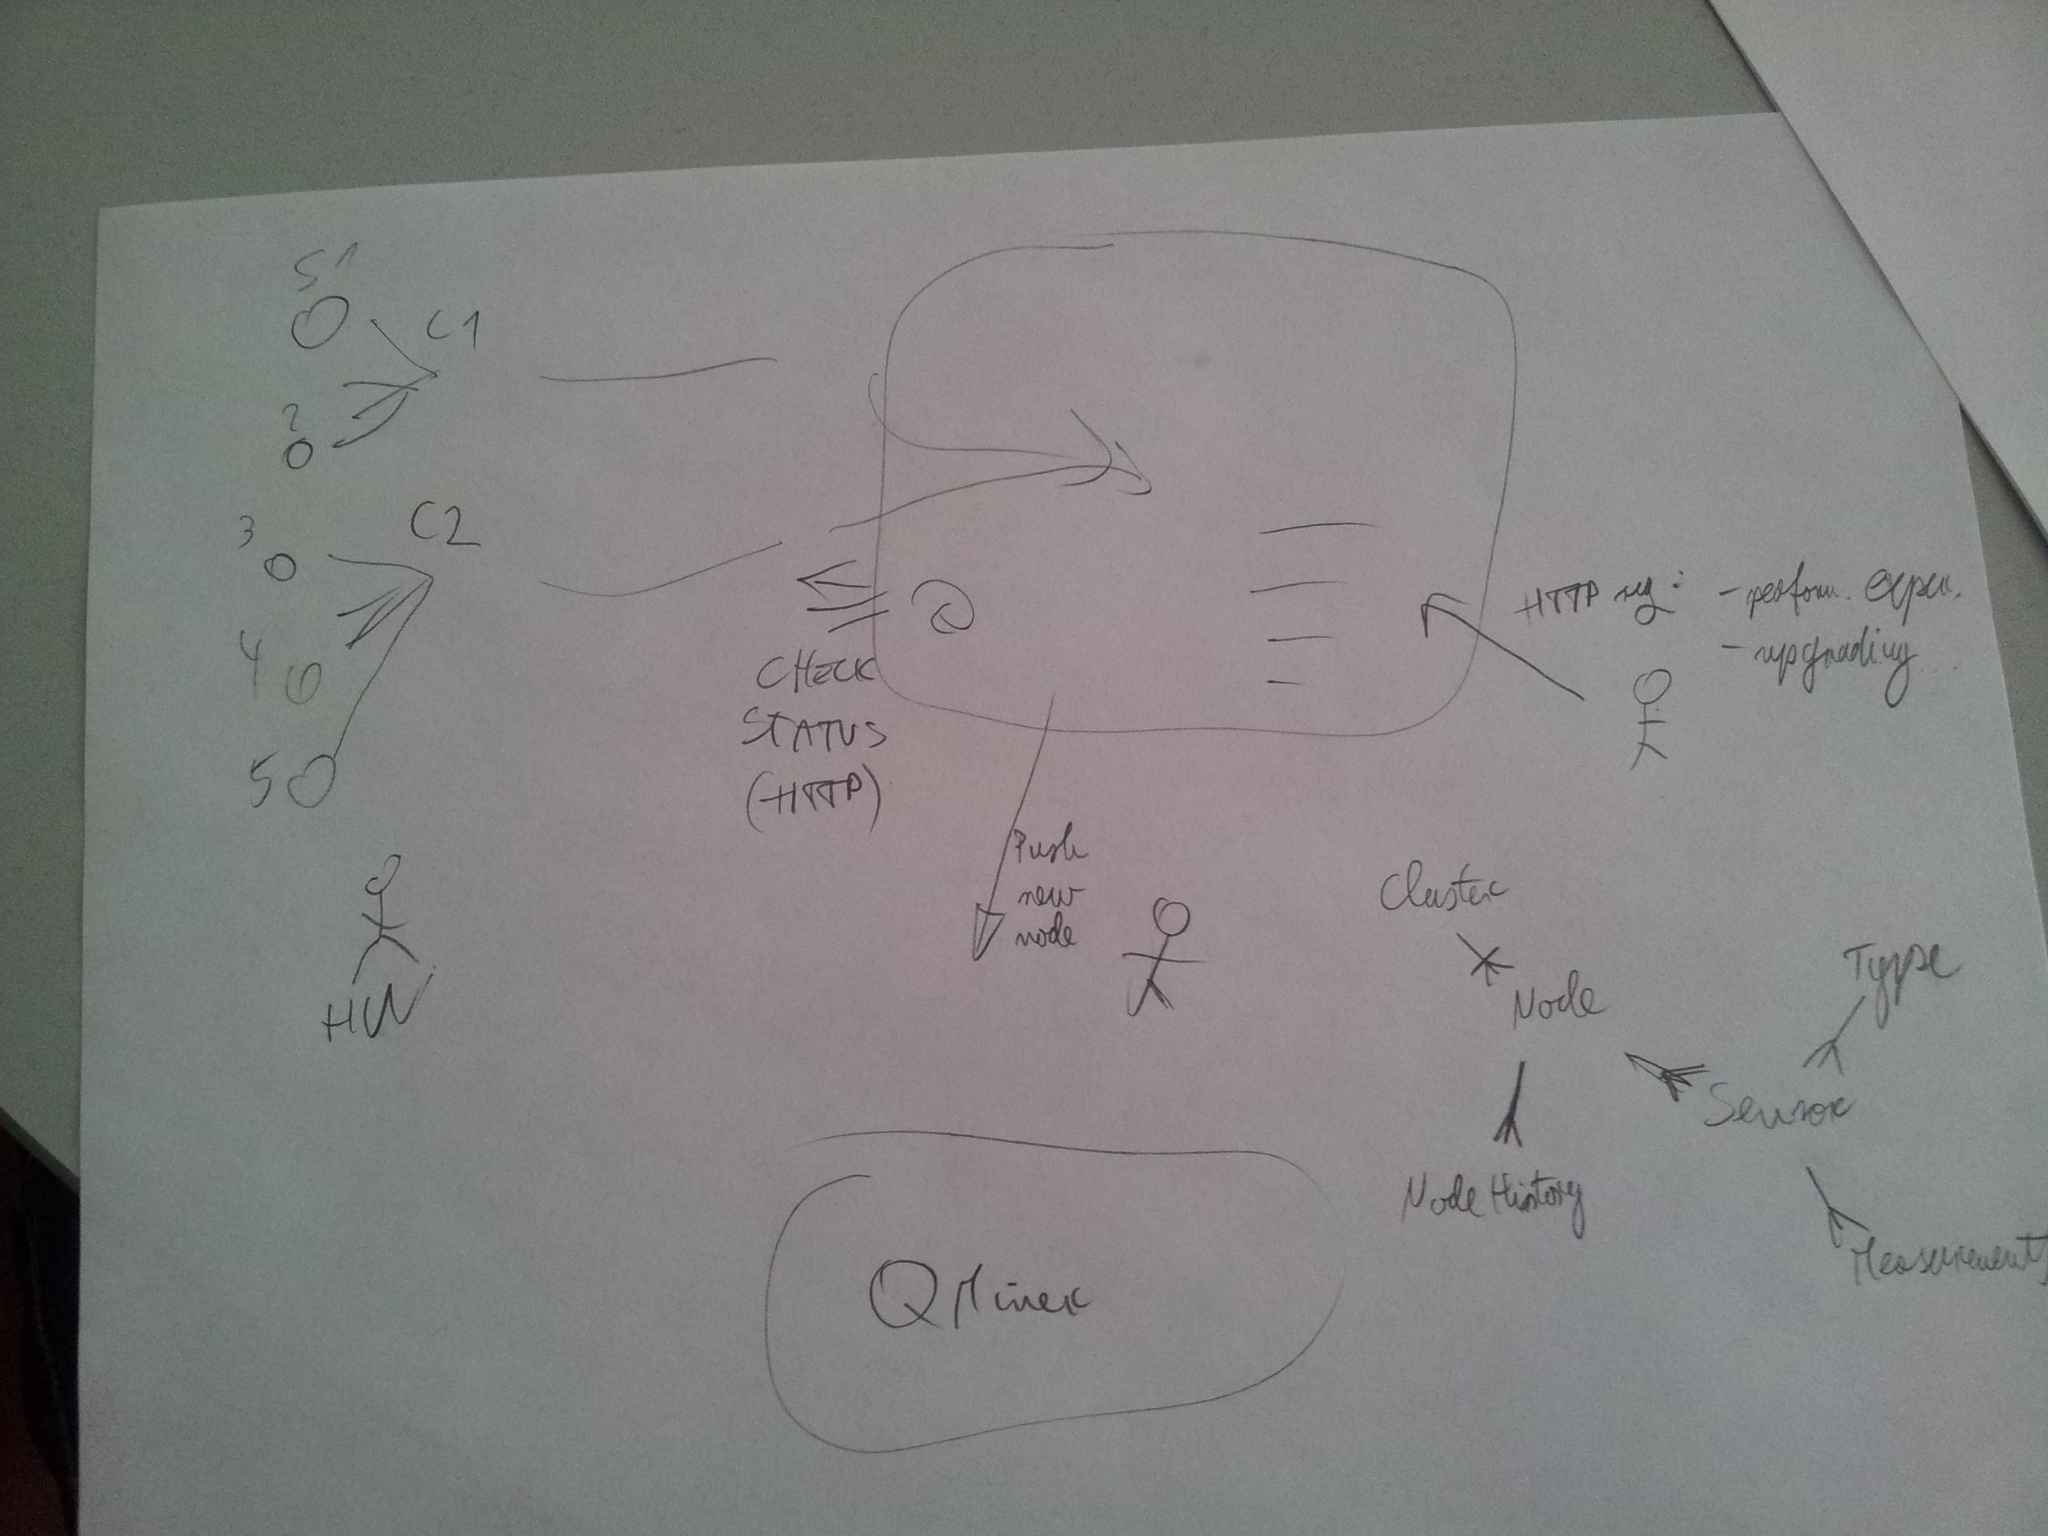 S1
C1
2
3
C2
4
5
CHECK
STATUS
(HTTP)
HTTP req: - perform. exper.
- upgrading
Push
new
node
HW
Cluster
Node
Type
Sensor
NodeHistory
Measurements
QMiner